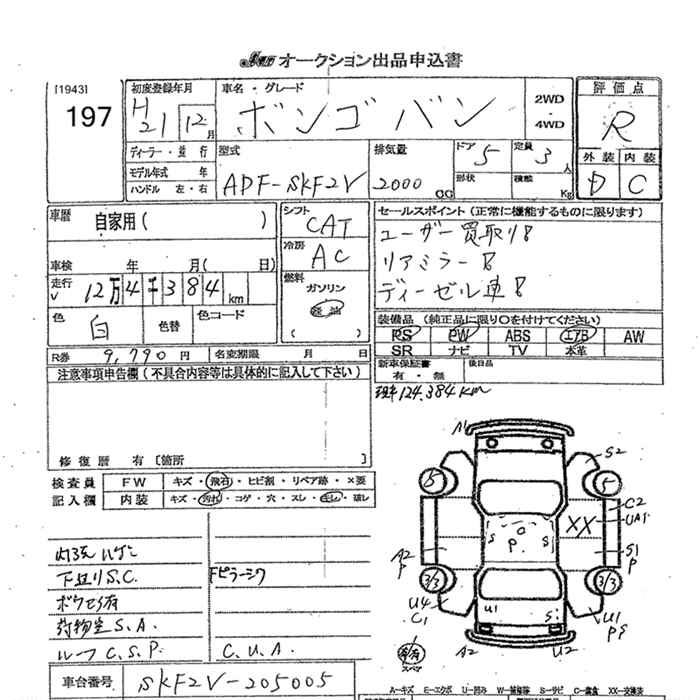 オークション出品申込書
[1943]
197
初度登録年月
H21 12月
車名・グレード
ボンゴ バン
2WD
・
4WD
評価点
R
外装 内装
D C
ディーラー・並行
モデル年式 年
ハンドル 左・右
型式
ADF-SKF2V
排気量
2000 CC
ドア 5
形状
定員 3 人
積載 Kg
車歴 自家用( )
車検 年 月( 日)
走行 12万4千384 km
色 白
色替
色コード
シフト
CAT
冷房
AC
燃料
ガソリン
軽油
( )
セールスポイント(正常に機能するものに限ります)
ユーザー買取り!!
リアミラー!!
ディーゼル車!!
装備品(純正品に限り○を付けてください)
PS PW ABS エアB AW
SR ナビ TV 本革
新車保証書
有・無
後日品
R券 9,790円
名変期限 月 日
注意事項申告欄(不具合内容等は具体的に記入して下さい)
修復歴 有〔箇所 〕
124,384km
検査員
記入欄
FW キズ・飛石・ヒビ割・リペア跡・×要
内装 キズ・汚れ・コゲ・穴・スレ・キレ・破レ
下回りS.C.
荷物室S.A.
ルーフC.S.P.
C.U.A.
車台番号 SKF2V-205005
A1
S2
5 5
C2
UA1
XX
S P S
A2
P
S1
P
3/3 3/3
U4
C1
U1 S
U1
PS
A2 U2
スペア
A=キズ E=エクボ U=凹み W=補修跡 S=サビ C=腐食 XX=交換済